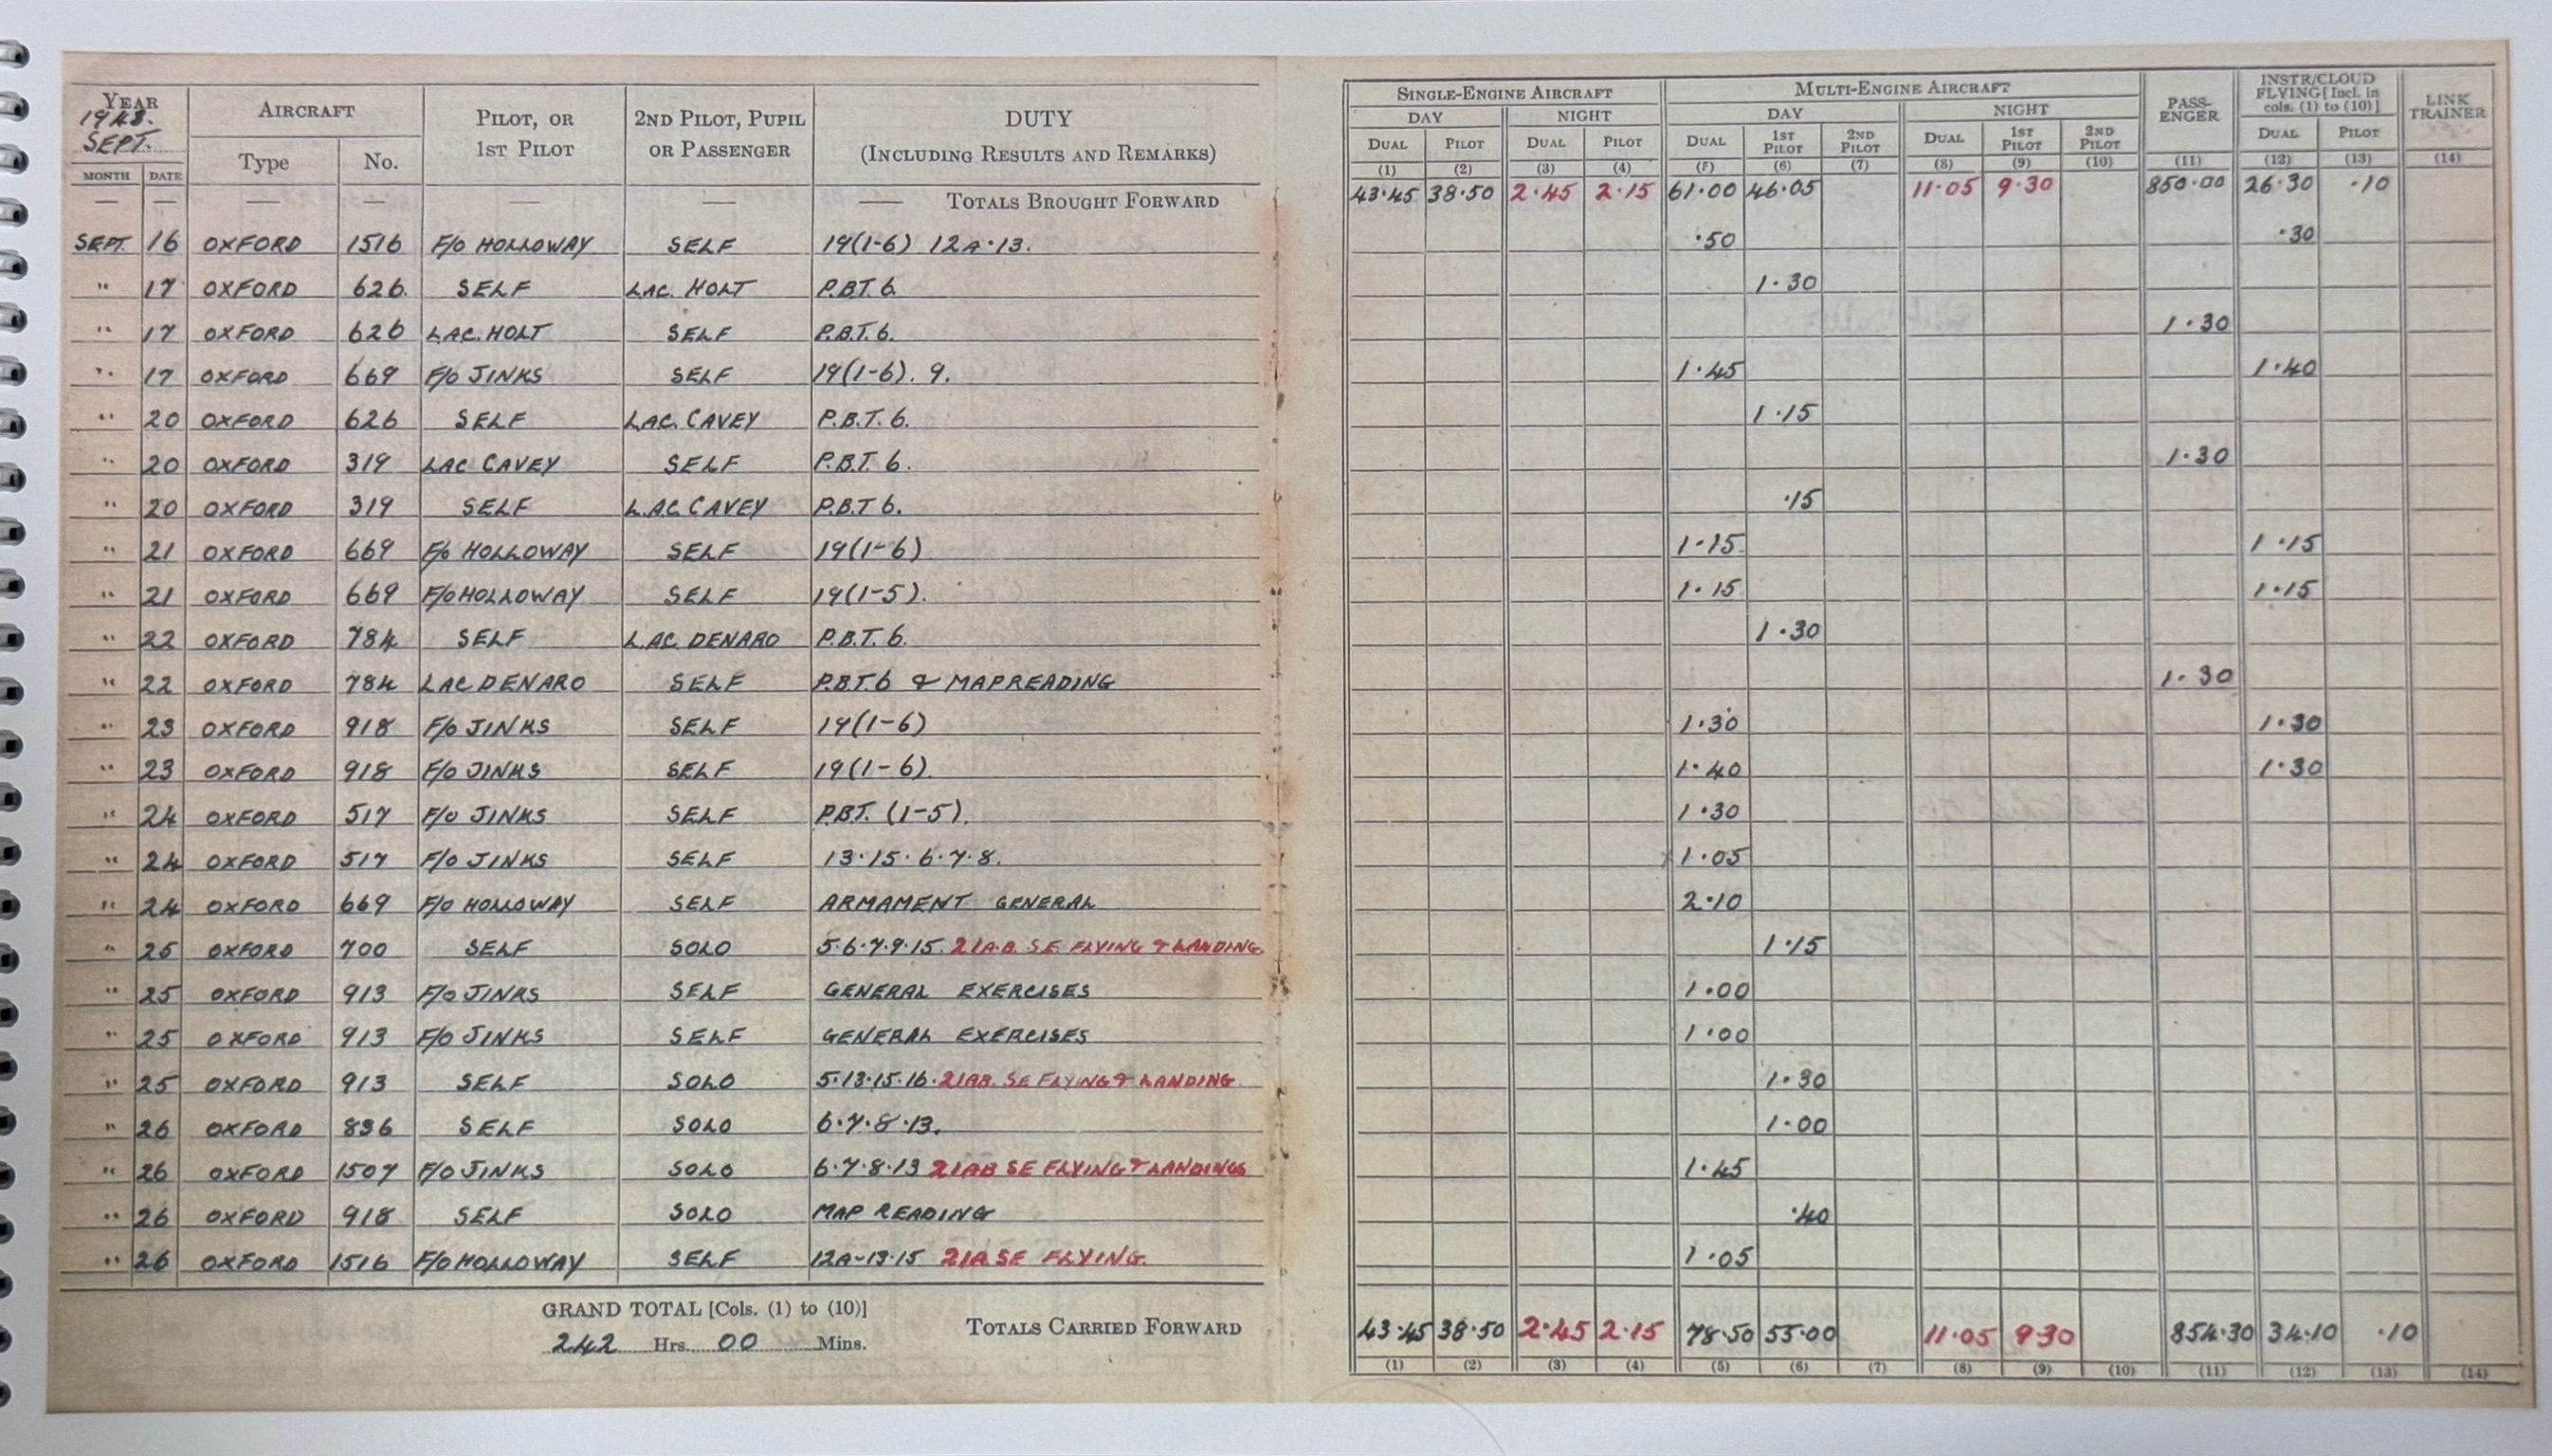 YEAR AIRCRAFT PILOT, OR 1ST PILOT 2ND PILOT, PUPIL OR PASSENGER DUTY (INCLUDING RESULTS AND REMARKS) SINGLE-ENGINE AIRCRAFT MULTI-ENGINE AIRCRAFT PASS-ENGER INSTR/CLOUD FLYING [Incl. in cols. (1) to (10)] LINK TRAINER
1943. SEPT. DAY NIGHT DAY NIGHT
MONTH DATE Type No. DUAL PILOT DUAL PILOT DUAL 1ST PILOT 2ND PILOT DUAL 1ST PILOT 2ND PILOT DUAL PILOT
(1) (2) (3) (4) (5) (6) (7) (8) (9) (10) (11) (12) (13) (14)
— — — — — — — TOTALS BROUGHT FORWARD 43·45 38·50 2·45 2·15 61·00 46·05 11·05 9·30 850·00 26·30 ·10
SEPT. 16 OXFORD 1516 F/O HOLLOWAY SELF 19(1-6) 12A·13. ·50 ·30
" 17 OXFORD 626. SELF LAC. HOLT P.B.T. 6. 1·30
" 17 OXFORD 626 LAC. HOLT SELF P.B.T. 6. 1·30
" 17 OXFORD 669 F/O JINKS SELF 19(1-6). 9. 1·45 1·40
" 20 OXFORD 626 SELF LAC. CAVEY P.B.T. 6. 1·15
" 20 OXFORD 319 LAC CAVEY SELF P.B.T. 6. 1·30
" 20 OXFORD 319 SELF L.A.C. CAVEY P.B.T 6. ·15
" 21 OXFORD 669 F/O HOLLOWAY SELF 19(1-6) 1·15 1·15
" 21 OXFORD 669 F/O HOLLOWAY SELF 19(1-5). 1·15 1·15
" 22 OXFORD 784 SELF L.AC. DENARO P.B.T. 6. 1·30
" 22 OXFORD 784 LAC DENARO SELF P.B.T. 6 & MAPREADING 1·30
" 23 OXFORD 918 F/O JINKS SELF 19(1-6) 1·30 1·30
" 23 OXFORD 918 F/O JINKS SELF 19(1-6) 1·40 1·30
" 24 OXFORD 517 F/O JINKS SELF P.B.T. (1-5). 1·30
" 24 OXFORD 517 F/O JINKS SELF 13·15·6·7·8. 1·05
" 24 OXFORD 669 F/O HOLLOWAY SELF ARMAMENT GENERAL 2·10
" 25 OXFORD 700 SELF SOLO 5·6·7·9·15. 21A.B. S.E. FLYING & LANDING. 1·15
" 25 OXFORD 913 F/O JINKS SELF GENERAL EXERCISES 1·00
" 25 OXFORD 913 F/O JINKS SELF GENERAL EXERCISES 1·00
" 25 OXFORD 913 SELF SOLO 5·13·15·16·21AB. SE FLYING & LANDING 1·30
" 26 OXFORD 836 SELF SOLO 6·7·8·13. 1·00
" 26 OXFORD 1507 F/O JINKS SOLO 6·7·8·13 21AB SE FLYING & LANDINGS 1·45
" 26 OXFORD 918 SELF SOLO MAP READING ·40
" 26 OXFORD 1516 F/O HOLLOWAY SELF 12A-13·15 21A SE FLYING. 1·05
GRAND TOTAL [Cols. (1) to (10)]
242 Hrs. 00 Mins. TOTALS CARRIED FORWARD 43·45 38·50 2·45 2·15 78·50 55·00 11·05 9·30 854·30 34·10 ·10
(1) (2) (3) (4) (5) (6) (7) (8) (9) (10) (11) (12) (13) (14)